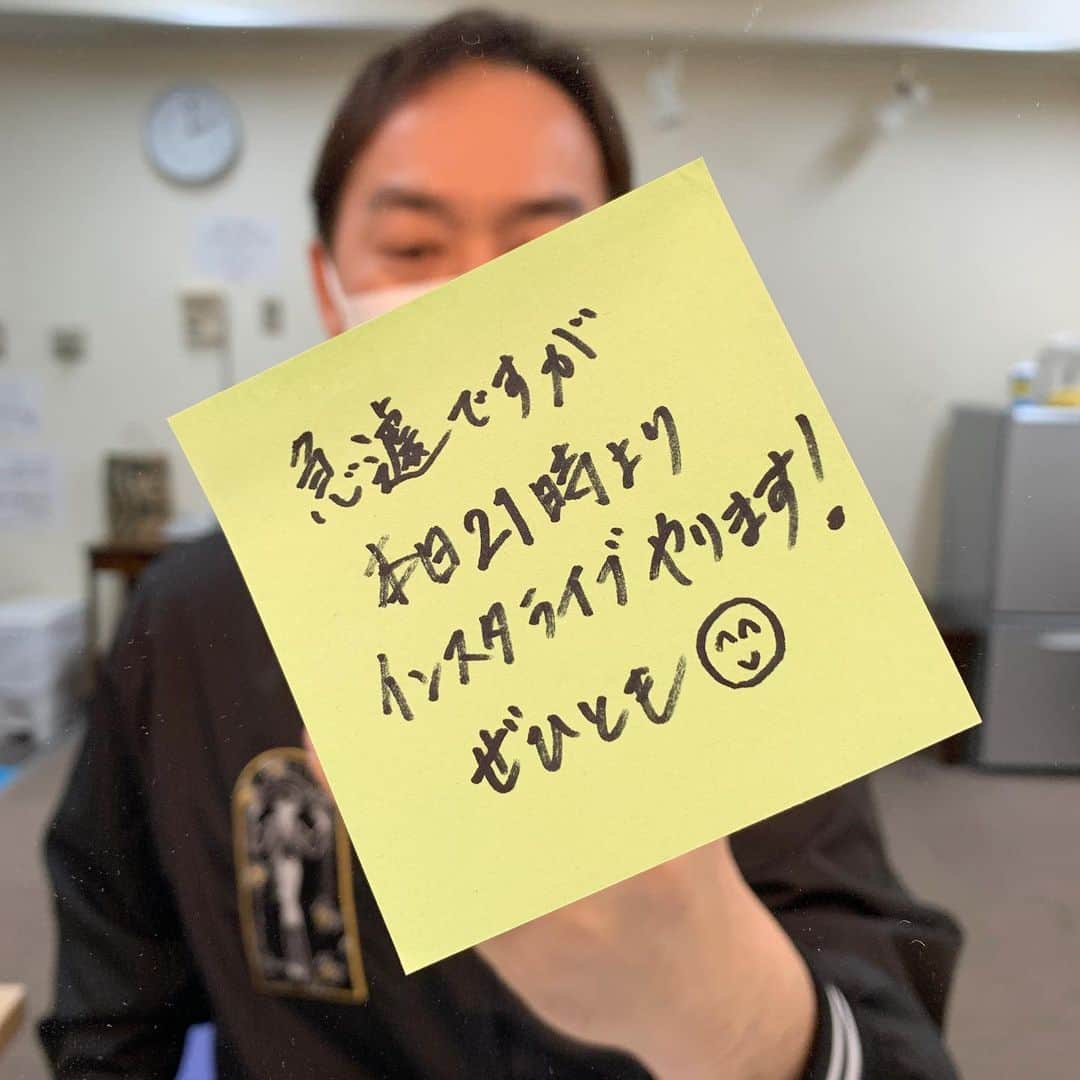 急遽ですが
本日21時より
インスタライブやります!
ぜひとも